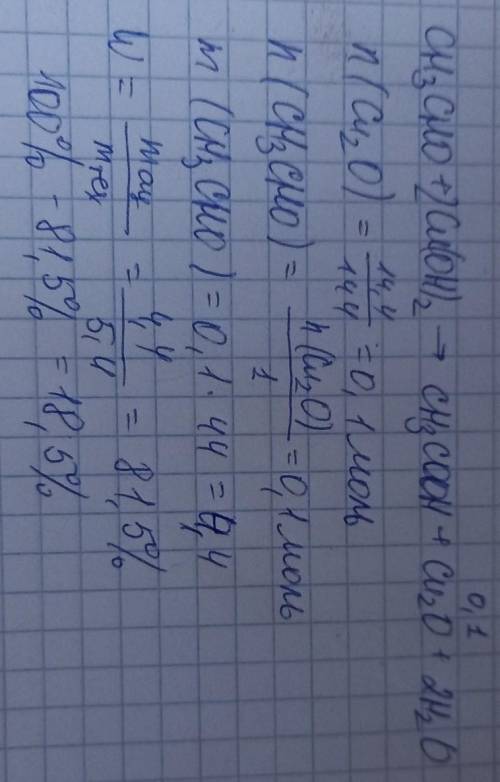 0,1
CH₃CHO + 2Cu(OH)₂ → CH₃COOH + Cu₂O + 2H₂O
n(Cu₂O) = 14,4/14,4 = 0,1 моль
n(CH₃CHO) = n(Cu₂O)/1 = 0,1 моль
m(CH₃CHO) = 0,1 · 44 = 4,4
W = mац/mтех = 4,4/5,4 = 81,5%
100% - 81,5% = 18,5%